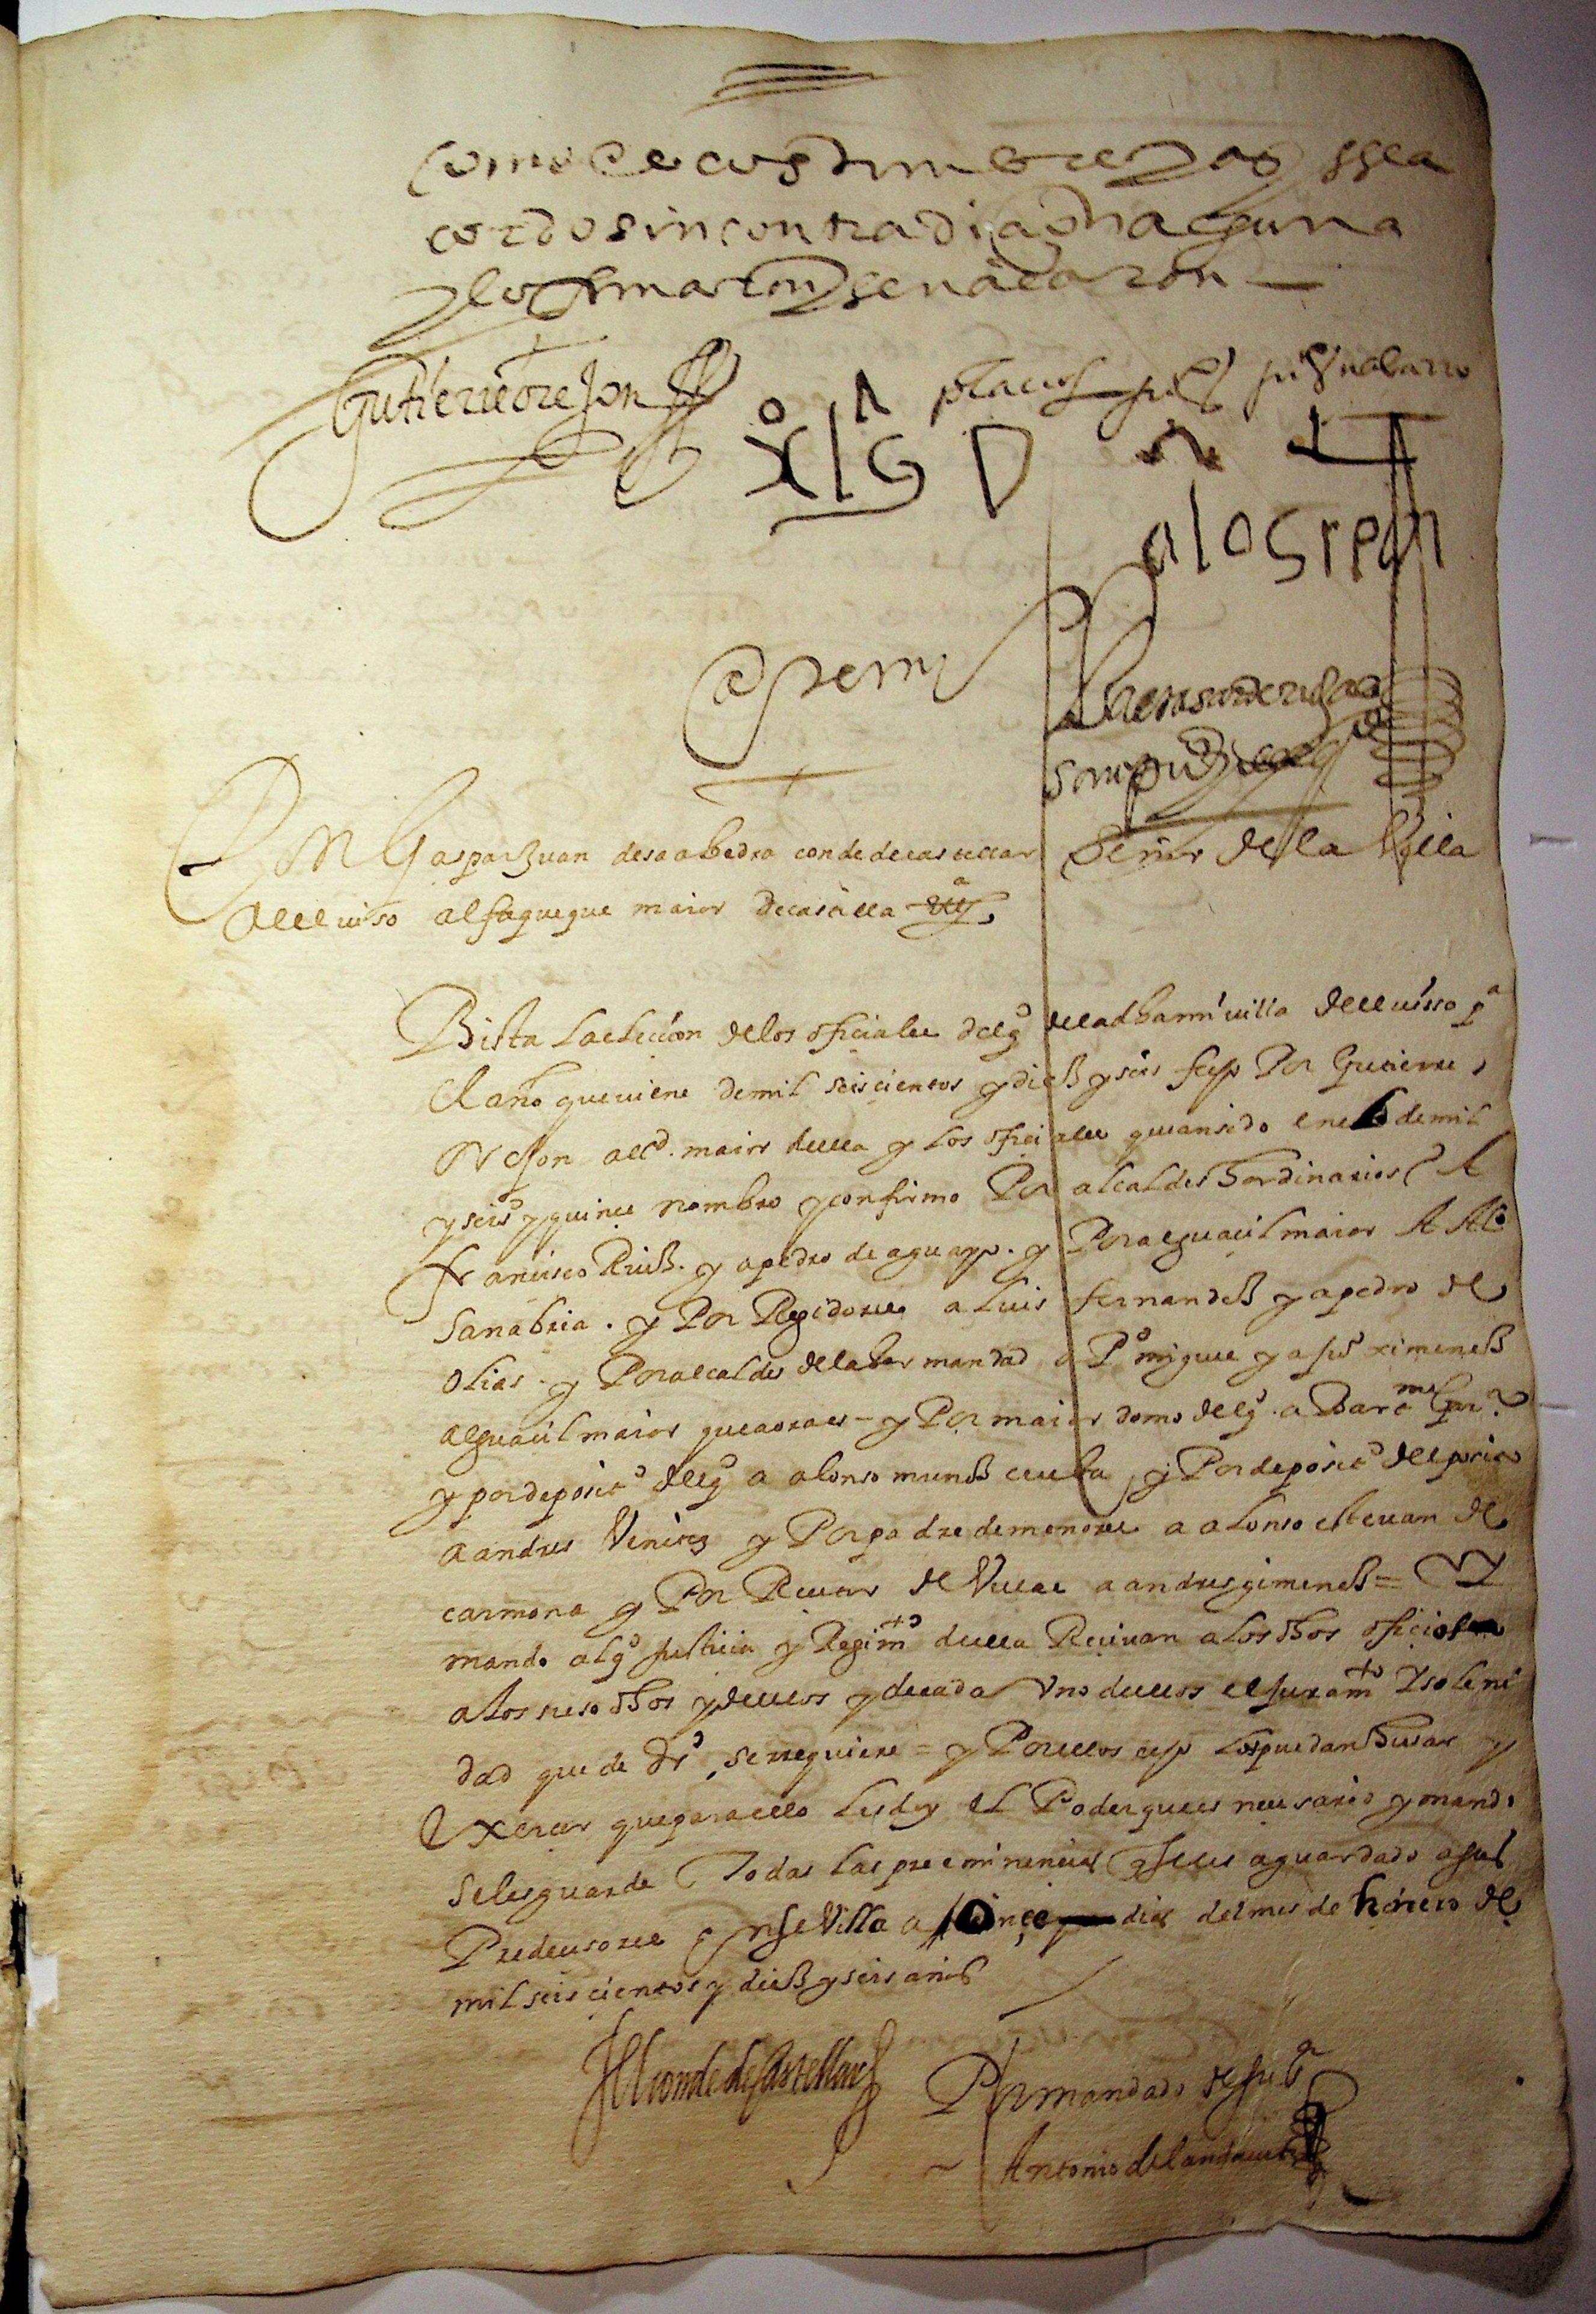 como es costumbre y ass sea
cordo sin contradiçion alguna
y lo firmaron y señalaron —
Gutierre orejon
ju° nabarro
alosrem
ante mi
Don Gaspar Juan de saabedra conde de castellar Señor de la Villa
del uiso alfaqueque maior de castilla
Bista la elecion de los oficiales del q° de la dha mi uilla del uisso pª
el año que uiene de mil seiscientos y dieß y seis fcha Por Gutierre
Orejon alcd. maior della y los oficiales que an sido en el de mil
y seisº y quince nombro y confirmo Por alcaldes hordinarios A
francisco Ruiß. y a pedro de aguayo. y Por alguacil maior A Alº
Sanabria. y Por Regidores a luis fernandeß y a pedro de
Olias. y Por alcaldes de la hermandad a Pº migue y a juº ximeneß
alguacil maior que aora es – y Por maior domo del qº a Barme Garª
y por deposito del qº a alonso muneß , y Por deposito del posito
a andres Venites y Por padre de menores a alonso esteuan de
carmona y Por Recetor de Vulas a andres gimeneß = Y
mando al qº justicia y Regimto della Reciuan a los dhos oficios
a los suso dhos y dellos y de cada Uno dellos el juramto Y soleni
dad que de drº se rrequiere = y Por ellos los puedan husar y
Exercer que para ello les doy el Poder que es necesario y mando
se les guarde Todas las preeminencias q se les a guardado a sus
Predecesores En seVilla a onçe dias del mes de henero de
mil seis cientos y dieß y seis años
El conde del castellar
Por mandado de su sª
Antonio de landaueta